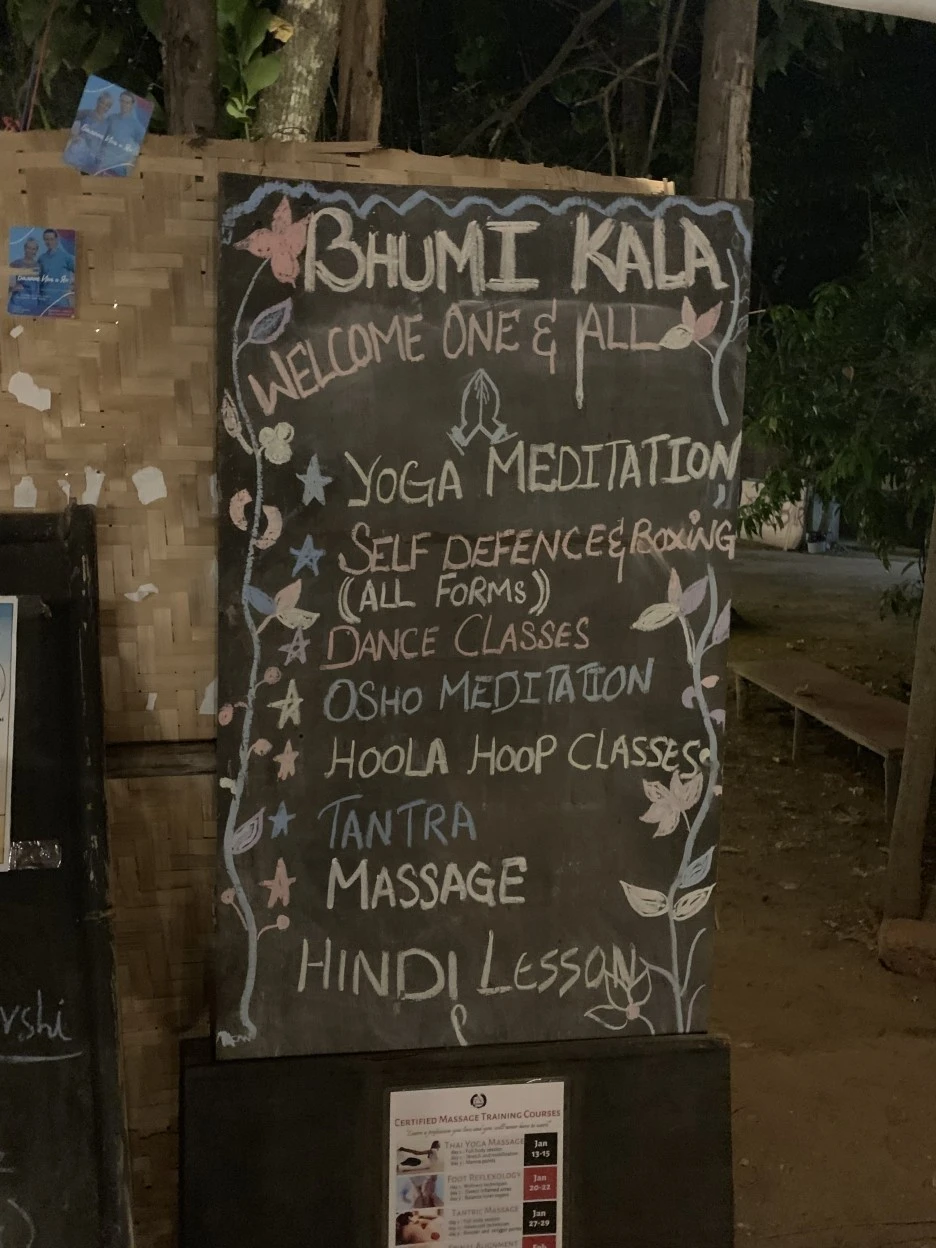 BHUMI KALA
WELCOME ONE & ALL
YOGA MEDITATION
SELF DEFENCE & BOXING
((ALL FORMS))
DANCE CLASSES
OSHO MEDITATION
HOOLA HOOP CLASSES
TANTRA
MASSAGE
HINDI LESSON
vshi
CERTIFIED MASSAGE TRAINING COURSES
THAI YOGA MASSAGE
Jan
13-15
FOOT REFLEXOLOGY
Jan
20-22
TANTRIC MASSAGE
Jan
27-29
ALIGNMENT
Feb